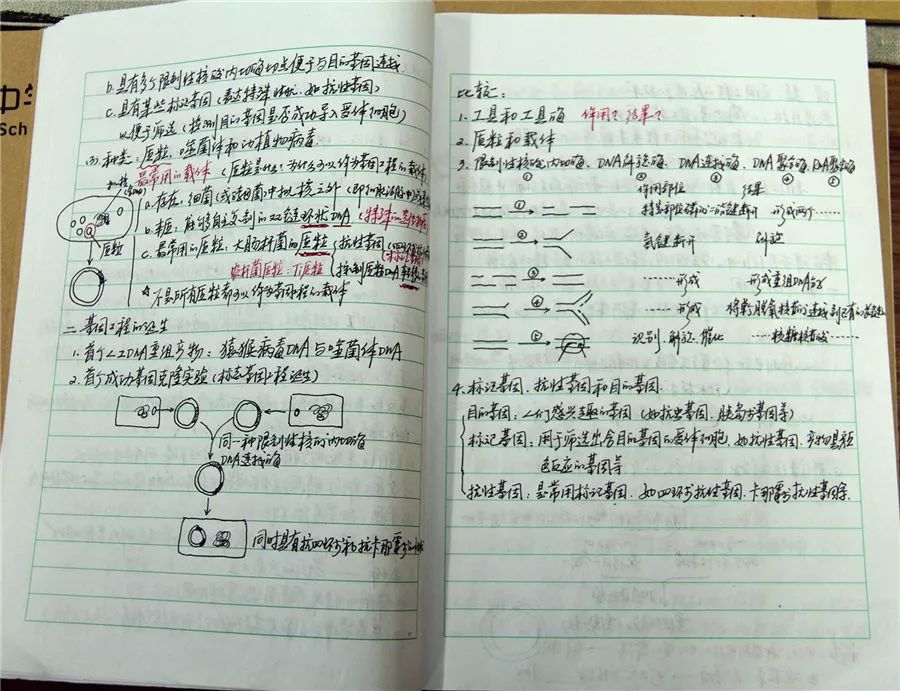 中
Sch
b.具有多个限制性核酸内切酶切点便于与目的基因连接.
c.具有某些标记基因(表达特殊性状,如抗性基因)
以便于筛选(检测目的基因是否成功导入受体细胞)
(3)种类:质粒,噬菌体和动植物病毒
最常用的载体(质粒是什么?为什么可以作为基因工程的载体
拟核
a.存在:细菌(或酵母菌)中拟核之外(即细胞溶胶中)
b.本质:能够自主复制的双链环状DNA
质粒
c.最常用的质粒:大肠杆菌的质粒(抗性基因
农杆菌质粒:Ti质粒
☆不是所有质粒都可以作为基因工程的载体
二.基因工程的诞生
1.首个人工DNA重组产物:猿猴病毒DNA与噬菌体DNA
2.首个成功基因克隆实验(标志基因工程诞生)
同一种限制性核酸内切酶
DNA连接酶
同时具有抗四环素和抗卡那霉素
比较:
1.工具和工具酶 作用?结果?
2.质粒和载体
3.限制性核酸内切酶、DNA解旋酶、DNA连接酶、DNA聚合酶、RNA聚合酶
① ② ③ ④ ⑤
作用部位 结果
① 特定部位磷酸二酯键断开 形成两个……
② 氢键断开 解旋
③ ……形成 形成重组DNA分子
④ ……形成 将单个脱氧核苷酸连接到已有的
⑤ 识别、解旋、催化 ……核糖核苷酸
4.标记基因、抗性基因和目的基因.
目的基因:人们感兴趣的基因(如抗虫基因、胰岛素基因等)
标记基因:用于筛选出含目的基因的受体细胞,如抗性基因、产物具颜
色反应的基因等
抗性基因:是常用标记基因,如四环素抗性基因、卡那霉素抗性基因等.